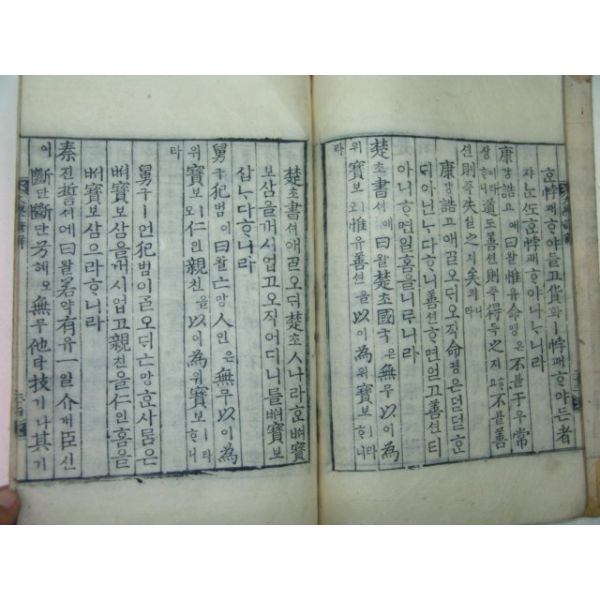 호悖패ᄒᆞ야들고貨화ㅣ悖패ᄒᆞ야든者
쟈ᄂᆞᆫ도悖패ᄒᆞ야나ᄂᆞ니라
康강誥고애曰왈惟유命명은不블于우常
샹이라ᄒᆞ니道도善션則즉得득之지ᄒᆞ고不블善
션則즉失실之지矣의니라
康강誥고애ᄀᆞᆯ오ᄃᆡ오직命명은덛덛ᄒᆞᆫ
ᄃᆡ아닌ᄂᆞ다ᄒᆞ니善션ᄒᆞ면얻고善션티
아니ᄒᆞ면일홈을니ᄅᆞ니라
楚초書셔애曰왈楚초國국은無무以이為
위寶보ㅣ오惟유善션을以이為위寶보ㅣ라ᄒᆞ니
라
楚초書셔애ᄀᆞᆯ오ᄃᆡ楚초ㅅ나라ᄒᆞᆫᄡᅥ寶
보삼을꺼시업고오직어디니를ᄡᅥ寶보
삼ᄂᆞ다ᄒᆞ니라
舅구犯범이曰왈亡망人인은無무以이為
위寶보ㅣ오仁인親친을以이為위寶보ㅣ라ᄒᆞ니
라
舅구ㅣ언犯범이ᄀᆞᆯ오ᄃᆡ亡망ᄒᆞᆫ사ᄅᆞᆷ은
ᄡᅥ寶보삼을꺼시업고親친을仁인홈을
ᄡᅥ寶보삼으라ᄒᆞ니라
秦진誓셔에曰왈若약有유一일介개臣신
이斷단斷단兮혜오無무他타技기나其기